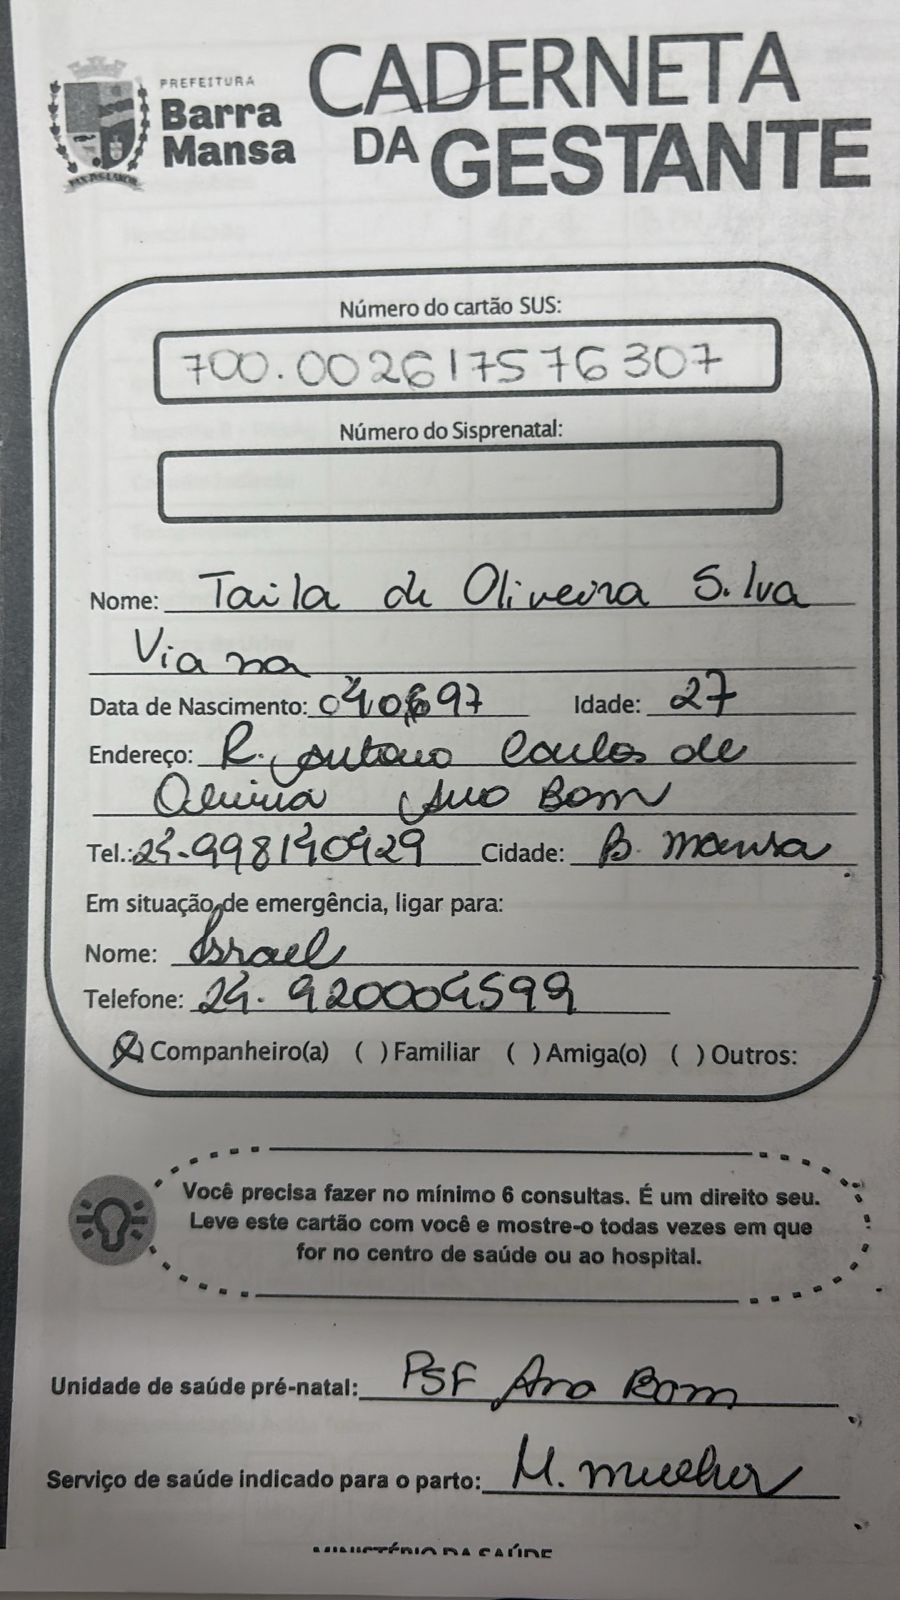 PREFEITURA
Barra
Mansa
CADERNETA
DA GESTANTE
Número do cartão SUS:
700.002617576307
Número do Sisprenatal:
Nome: Taila de Oliveira Silva
Viana
Data de Nascimento: 040697 Idade: 27
Endereço: R. Antonio Carlos de
Oliveira Ano Bom
Tel.: 24-998140429 Cidade: B. mansa
Em situação de emergência, ligar para:
Nome: Israel
Telefone: 24. 920004599
(X) Companheiro(a) ( ) Familiar ( ) Amiga(o) ( ) Outros:
Você precisa fazer no mínimo 6 consultas. É um direito seu.
Leve este cartão com você e mostre-o todas vezes em que
for no centro de saúde ou ao hospital.
Unidade de saúde pré-natal: PSF Ano Bom
Serviço de saúde indicado para o parto: H. mulher
MINISTÉRIO DA SAÚDE